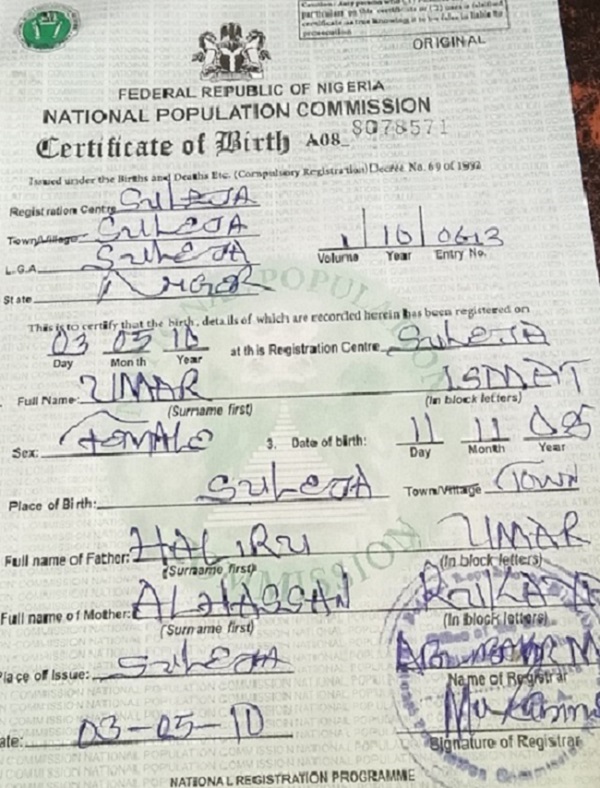 Caution: Any person who (1)
particulars on this certificate or (2) uses a falsified
certificate as true knowing it to be false is liable to
prosecution
ORIGINAL
FEDERAL REPUBLIC OF NIGERIA
NATIONAL POPULATION COMMISSION
Certificate of Birth A08 8078571
Issued under the Births and Deaths Etc. (Compulsory Registration) Decree No. 69 of 1992
Registration Centre SULEJA
Town/Village SULEJA
L.G.A. SULEJA
1 10 0613
Volume Year Entry No.
State NIGER
This is to certify that the birth, details of which are recorded herein has been registered on
03 05 10 at this Registration Centre SULEJA
Day Month Year
Full Name: UMAR ISMAT
(Surname first) (In block letters)
Sex: FEMALE 3. Date of birth: 11 11 05
Day Month Year
Place of Birth: SULEJA Town/Village TOWN
Full name of Father: HALIRU UMAR
(Surname first) (In block letters)
Full name of Mother: ALHASSAN
(Surname first) (In block letters)
Place of Issue: SULEJA
Name of Registrar
ate: 03-05-10
Signature of Registrar
NATIONAL REGISTRATION PROGRAMME